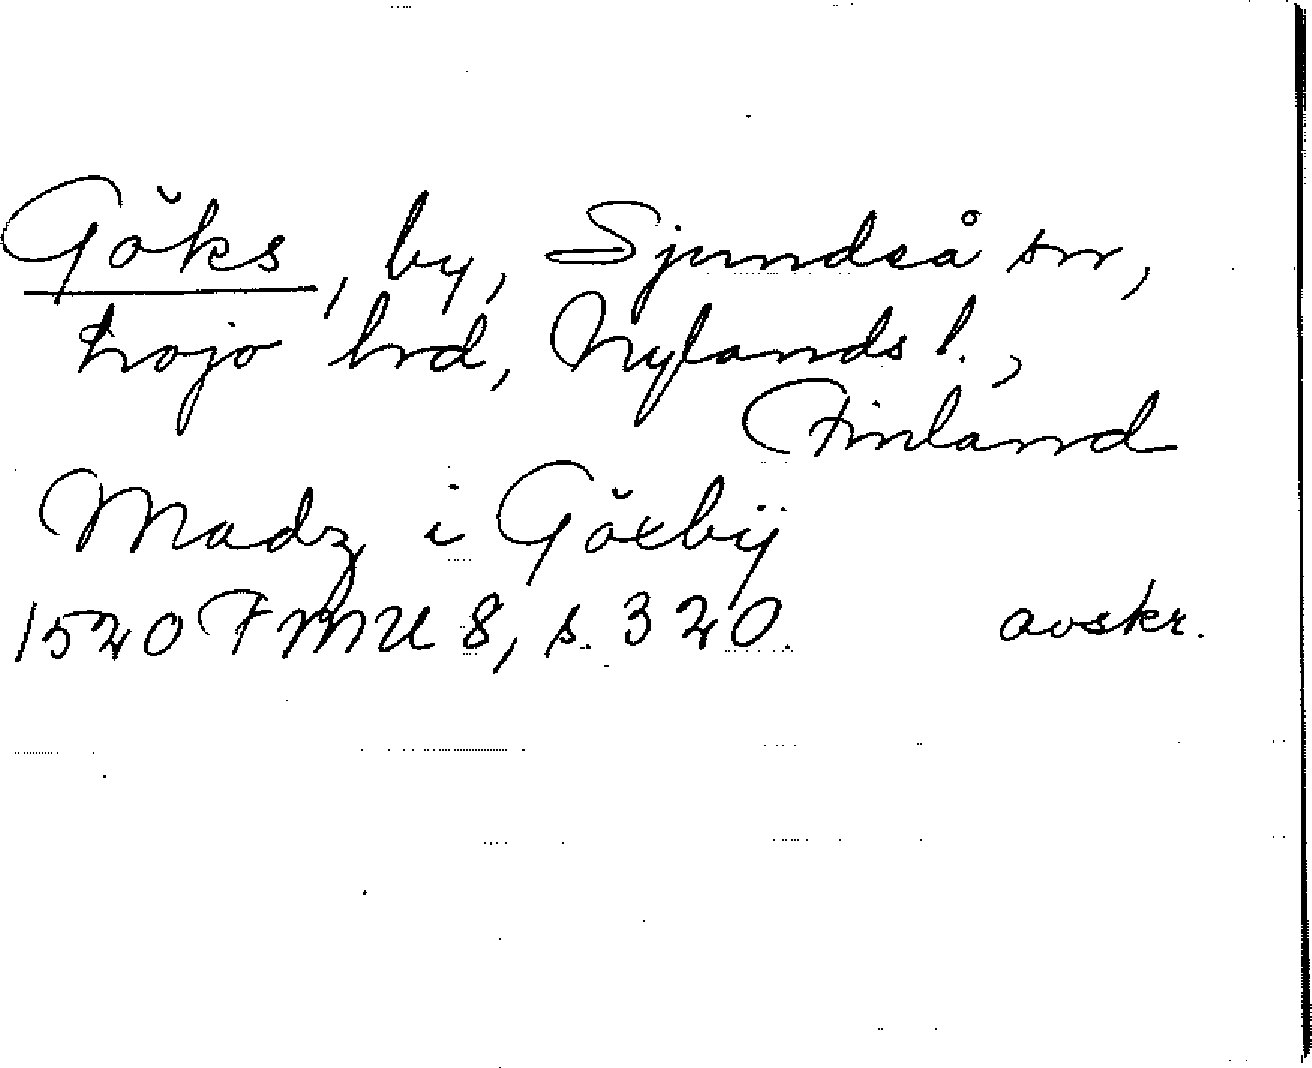 Göks, by, Sjundeå sn,
Lojo hrd, Nylands l.,
Finland
Madz i Göxbÿ
1520 FMU 8, s. 320. avskr.